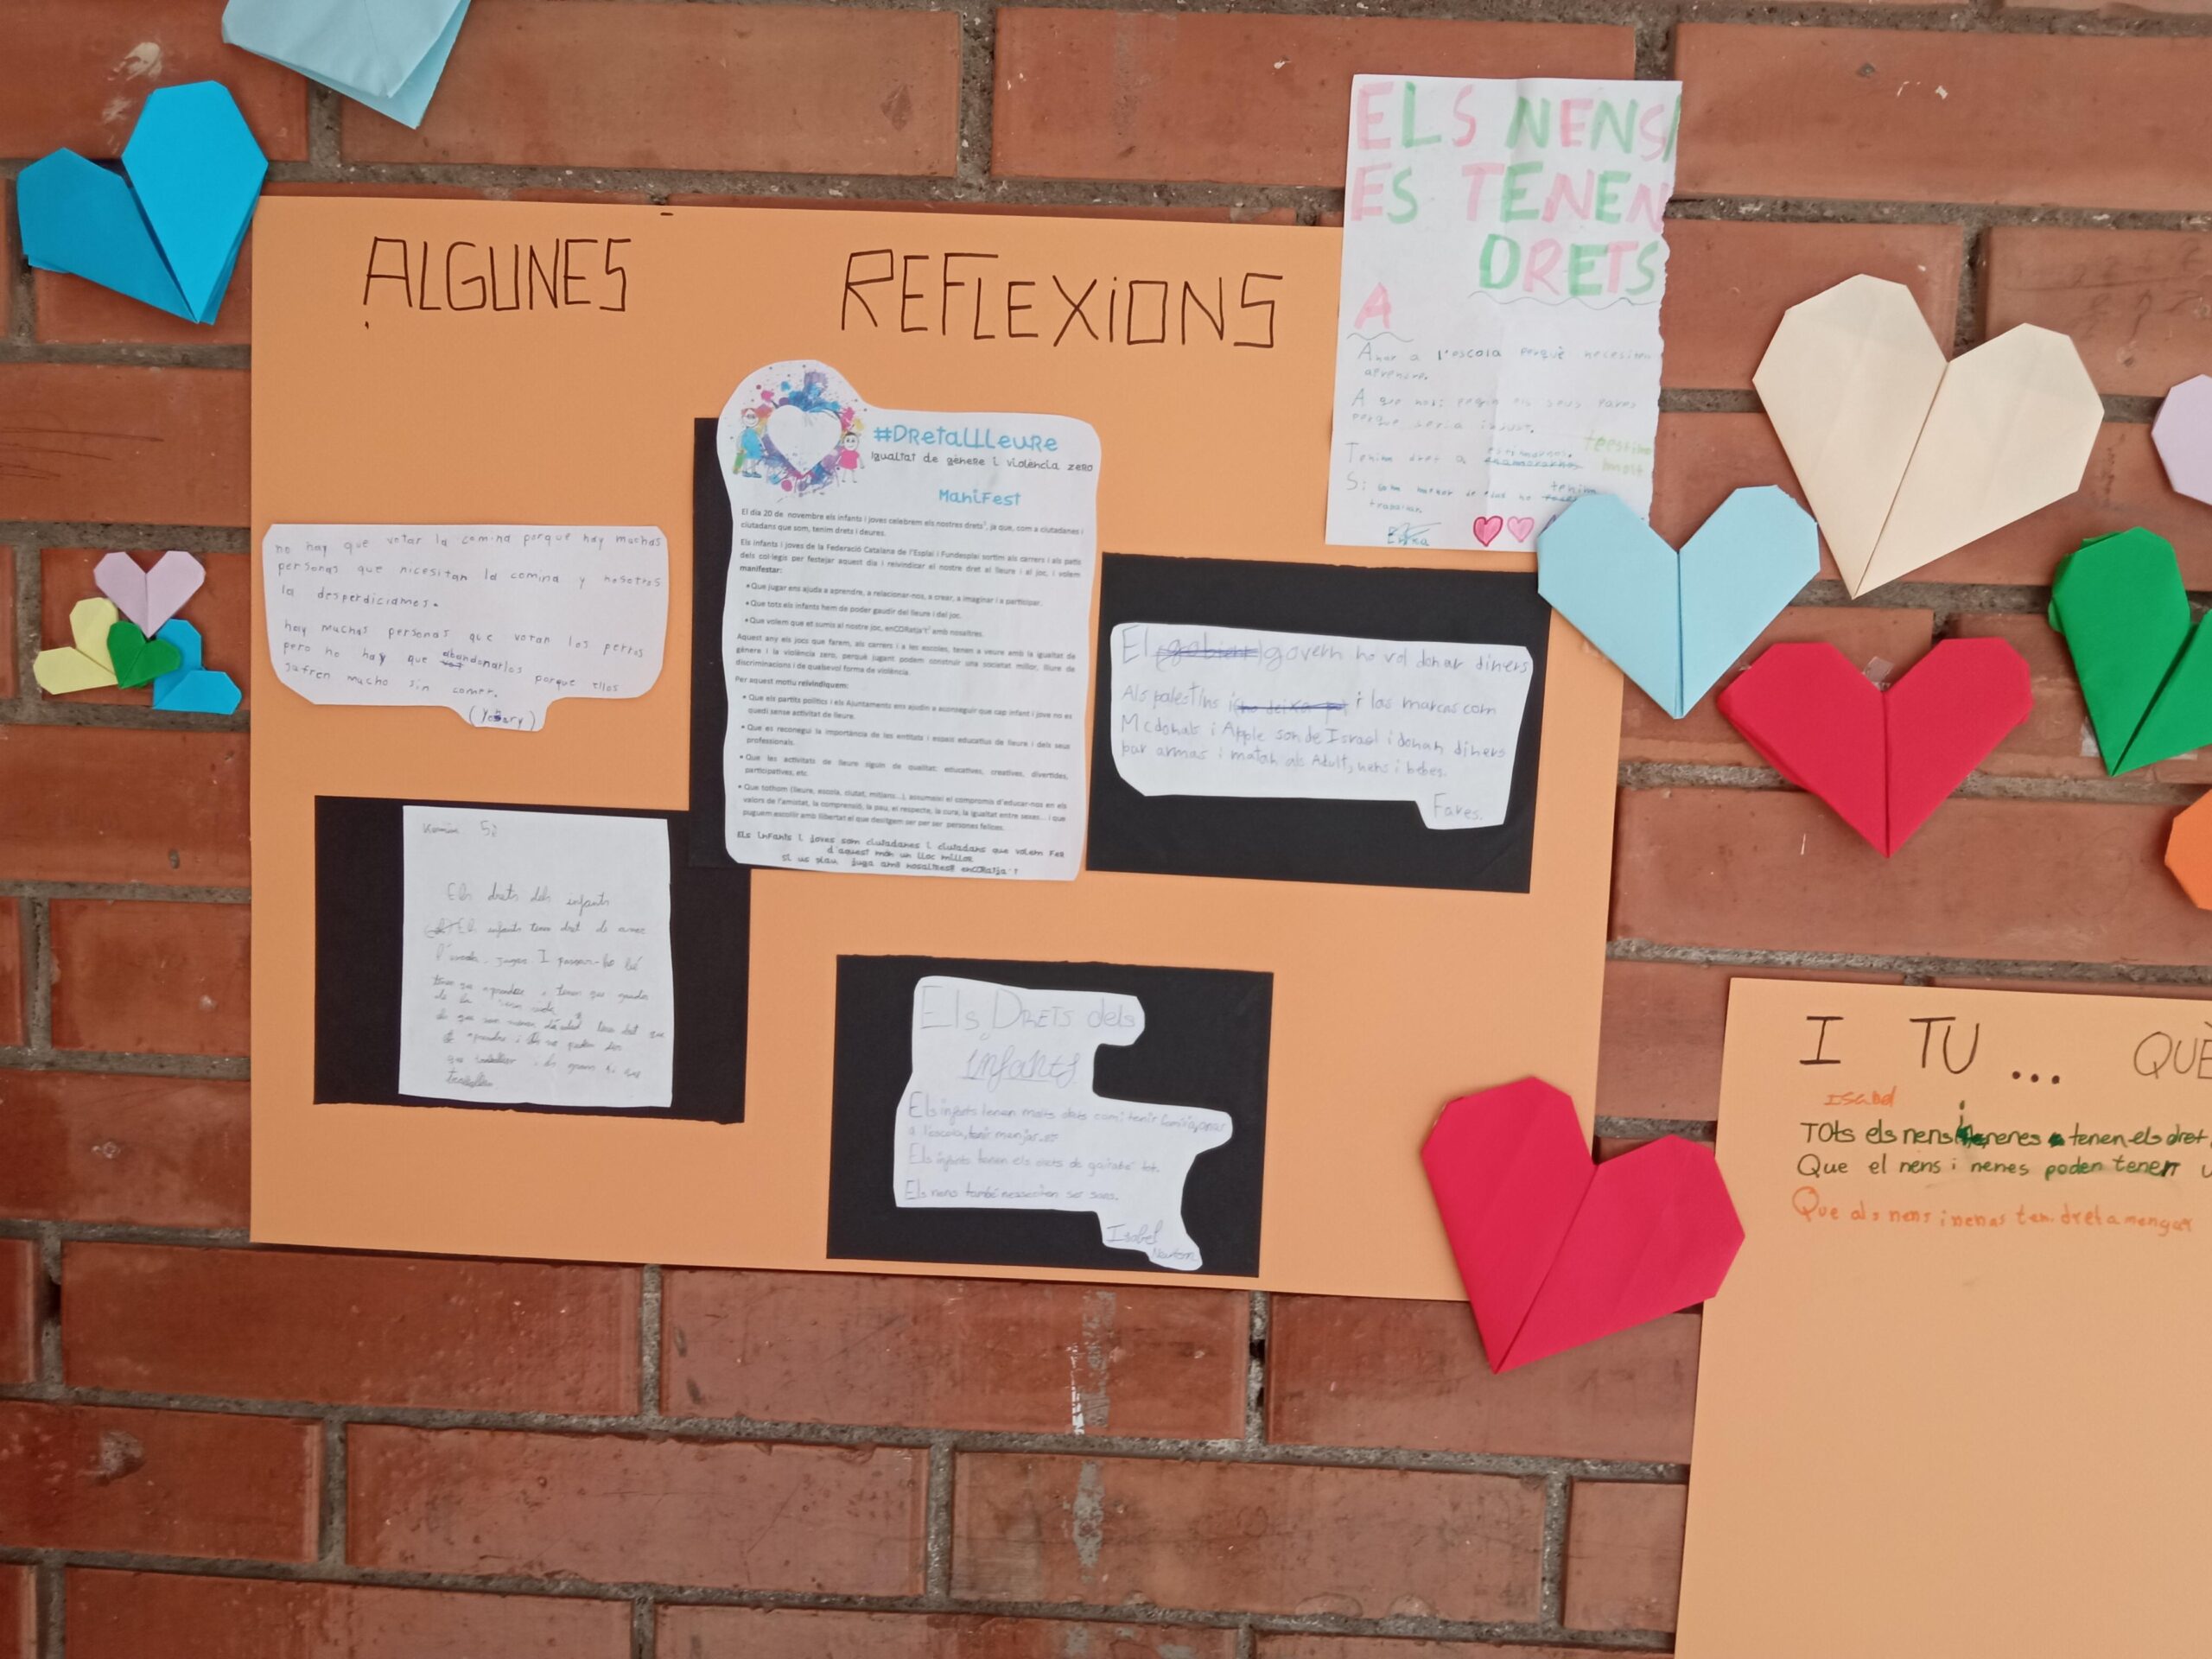 ALGUNES REFLEXIONS
no hay que votar la comina porque hay muchas
personas que nicesitan la comina y nosotros
la desperdiciames.
hay muchas personas que votan los perros
pero no hay que abandonarlos porque ellos
sufren mucho sin comer.
(Yosary)
#DretaLLleure
Igualtat de gènere i violència zero
Manifest
El dia 20 de novembre els infants i joves celebrem els nostres drets¹, ja que, com a ciutadanes i
ciutadans que som, tenim drets i deures.
Els infants i joves de la Federació Catalana de l'Esplai i Fundesplai sortim als carrers i als patis
dels col·legis per festejar aquest dia i reivindicar el nostre dret al lleure i al joc, i volem
manifestar:
• Que jugar ens ajuda a aprendre, a relacionar-nos, a crear, a imaginar i a participar.
• Que tots els infants hem de poder gaudir del lleure i del joc.
• Que volem que et sumis al nostre joc, enCORatja't² amb nosaltres.
Aquest any els jocs que farem, als carrers i a les escoles, tenen a veure amb la igualtat de
gènere i la violència zero, perquè jugant podem construir una societat millor, lliure de
discriminacions i de qualsevol forma de violència.
Per aquest motiu reivindiquem:
• Que els partits polítics i els Ajuntaments ens ajudin a aconseguir que cap infant i jove no es
quedi sense activitat de lleure.
• Que es reconegui la importància de les entitats i espais educatius de lleure i dels seus
professionals.
• Que les activitats de lleure siguin de qualitat: educatives, creatives, divertides,
participatives, etc.
• Que tothom (lleure, escola, ciutat, mitjans...), assumeixi el compromís d'educar-nos en els
valors de l'amistat, la comprensió, la pau, el respecte, la cura, la igualtat entre sexes... i que
puguem escollir amb llibertat el que desitgem ser per ser persones felices.
Els infants i joves som ciutadanes i ciutadans que volem fer
d'aquest món un lloc millor
si us plau juga amb nosaltres! enCORatja't
ELS NENS/
ES TENEN
DRETS
A
Anar a l'escola perquè necesiten
aprendre.
A que no
perque seria injust.
Tenim dret a
tenim
treballar.
El govern no vol donar diners
Als palestins i i las marcas com
Mcdonals i Apple son de Israel i donan diners
par armas i matan als Adult, nens i bebes.
Fares.
5è
Els drets dels infants
infants tenen dret de anar
I passar-ho bé
Els DRETS dels
infants
Els infants tenen molts drets com: tenir familia, anar
a l'escola, tenir menjar
Els infants tenen els drets de gairabé tot.
Els nens també nessesiten ser sans.
Isabel
I TU... QUÈ
Isabel
TOts els nens i nenes tenen els dret
Que el nens i nenes poden tener
Que als nens i nenas ten. dret a mengar